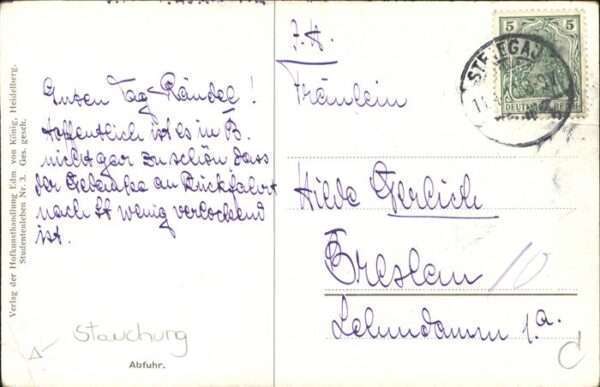 Verlag der Hofkunsthandlung Edm. von König, Heidelberg.
Studentenleben Nr. 3. Ges. gesch.
Guten Tag Rändel!
Hoffentlich ist es in B.
nicht gar zu schön dass
der Gedanke an Rückfahrt
nach St wenig verlockend
ist.
Stauchung
Abfuhr.
5 5
Fräulein
Hilde Gerlich
Breslau 10
Lehmdamm 1.a.